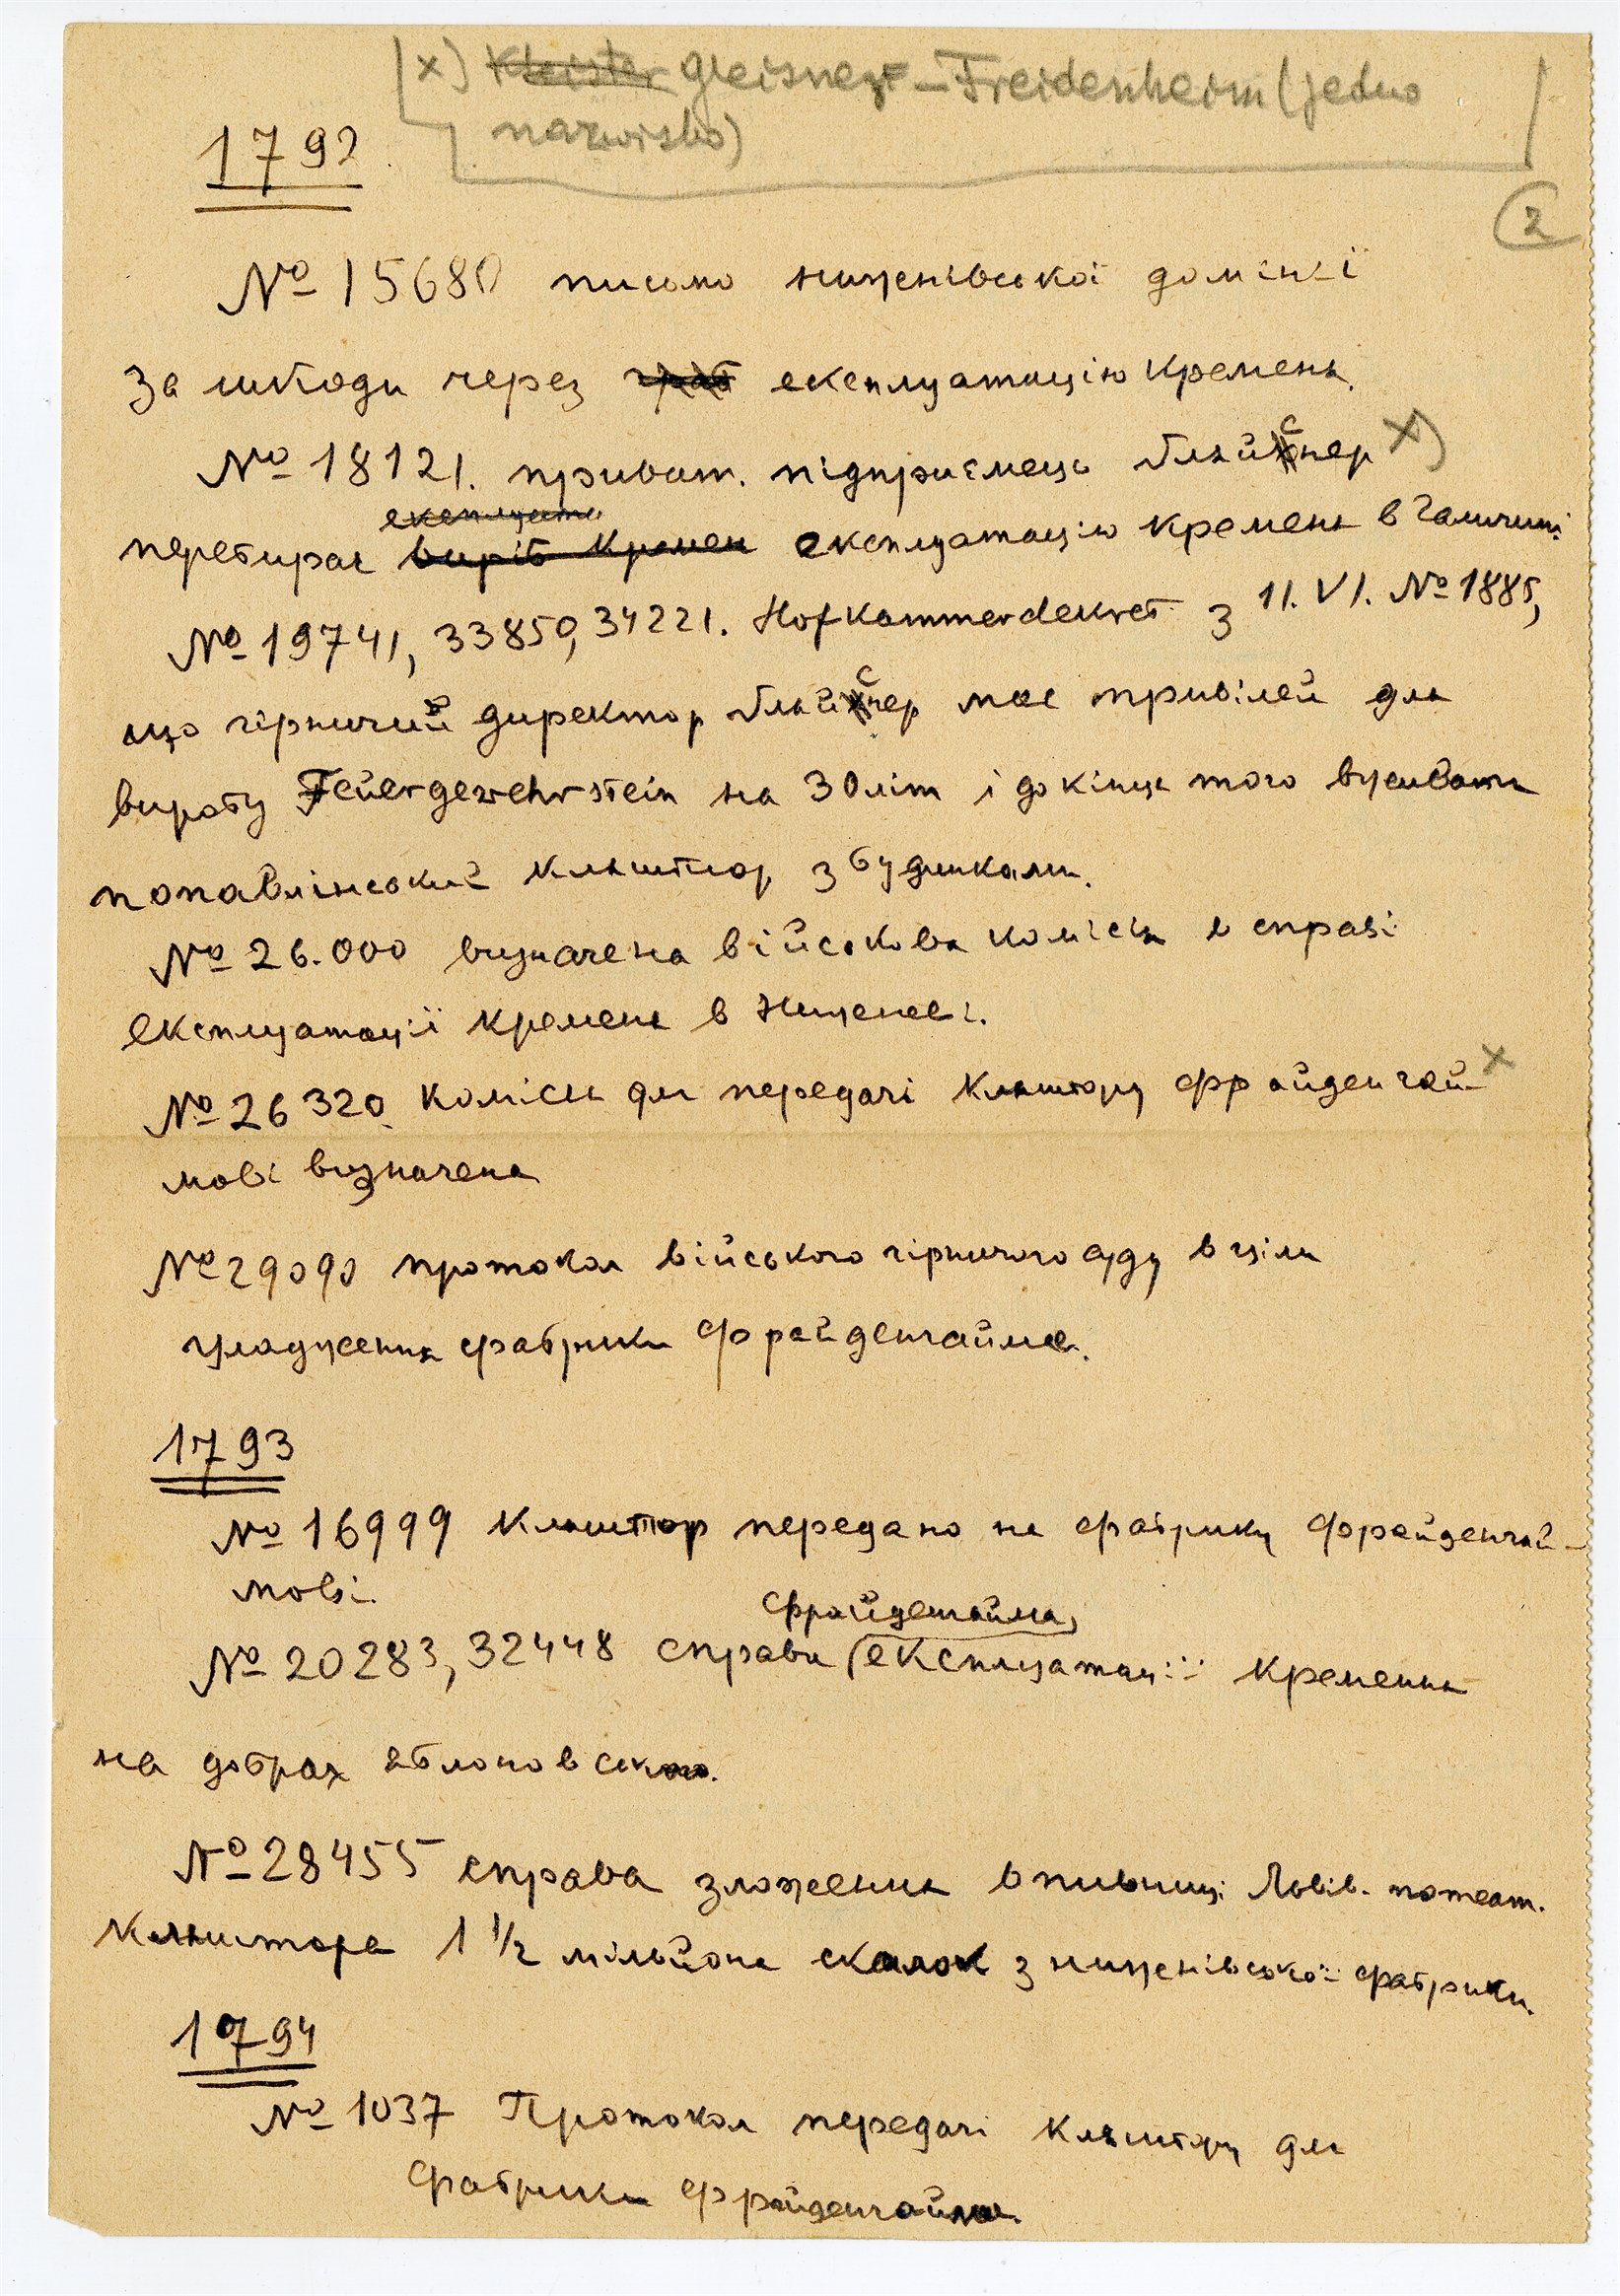 x) Kleister Gleisner – Freidenheim (jedno
nazwisko)
1792
2
№ 15680 письмо нижнівської домінії
за шкоди через експлуатацію кременя.
№ 18121. приват. підприємець Глайснер x)
перебирає експлуата виріб кремен експлуатацію кременя в Галичині
№ 19741, 33850, 34221. Hofkammerdekret з 11. VI. № 1885,
що гірничий директор Глайснер має привілей для
виробу Feuergewehrstein на 30 літ і до кінця того вживати
попавлінський кляштор з будинками.
№ 26.000 визначена військова комісія в справі
експлуатації кременя в Нижневі.
№ 26320. комісія для передачі кляштору Фрайденгай- x
мові визначена
№ 29090 протокол війського гірничого суду в ціли
уладження фабрики Фрайденгайма.
1793
№ 16999 кляштор передано на фабрику Фрайденгай-
мові.
Фрайденгайма,
№ 20283, 32448 справи експлуатації кременя
на добрах Яблоновського.
№ 28455 справа зложення в пивниці Львів. потеат.
кляштора 1 1/2 мільйона скалок з нижнівської фабрики.
1794
№ 1037 Протокол передачі кляштору для
фабрики Фрайденгайма.